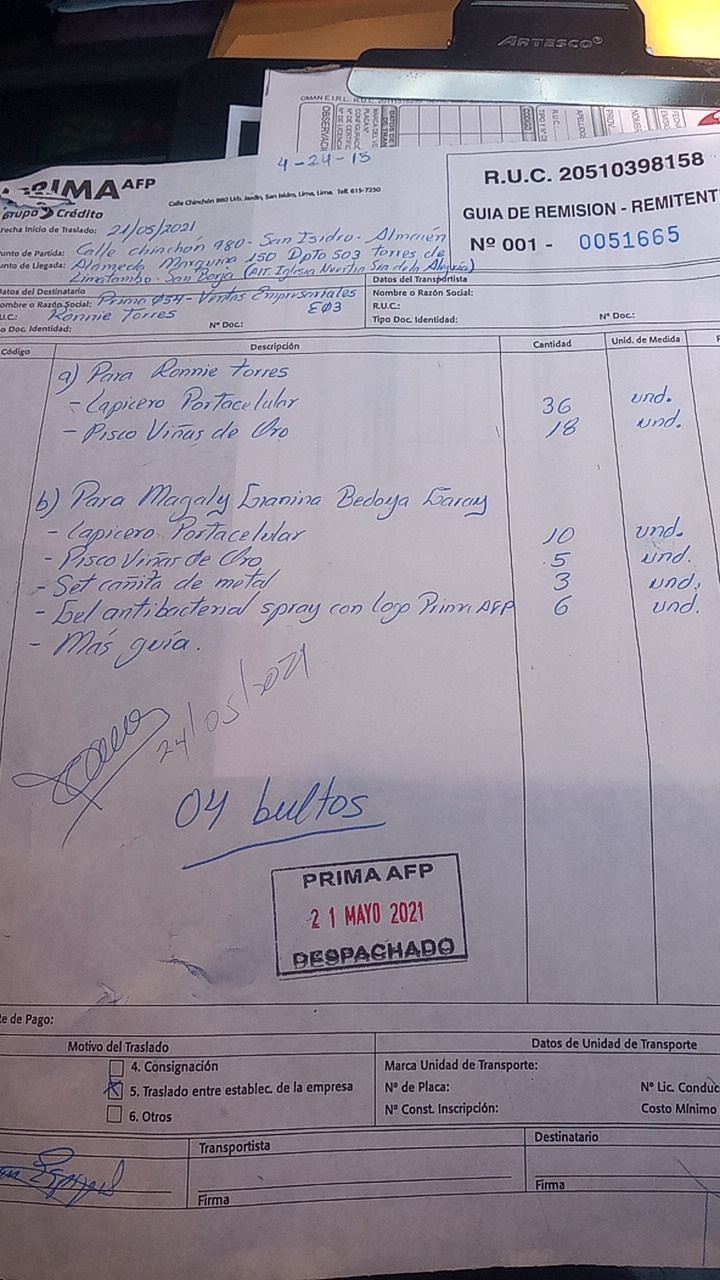 ARTESCO
OMAN E.I.R.L.
OBSERVAC
4-24-13
PRIMA AFP
Grupo Crédito
Calle Chinchón 980 Urb. Jardín, San Isidro, Lima, Lima. Telf. 615-7250
R.U.C. 20510398158
GUIA DE REMISION - REMITENT
Nº 001 - 0051665
Fecha Inicio de Traslado: 21/05/2021
unto de Partida: Calle chinchón 980 - San Isidro - Almacén
unto de Llegada: Alameda Marquina 150 Dpto 503 Torres de
Limatambo - San Borja (Alt. Iglesia Nuestra Sra de la Alegría)
Datos del Destinatario
ombre o Razón Social: Prima AFP - Ventas Empresariales
U.C.: Ronnie Torres E03
o Doc. Identidad: Nº Doc:
Datos del Transportista
Nombre o Razón Social:
R.U.C:
Tipo Doc. Identidad: Nº Doc:
Código Descripción Cantidad Unid. de Medida
a) Para Ronnie Torres
- Lapicero Portacelular 36 und.
- Pisco Viñas de Oro 18 und.
b) Para Magaly Gianina Bedoya Garay
- Lapicero Portacelular 10 und.
- Pisco Viñas de Oro 5 und.
- Set cañita de metal 3 und.
- Gel antibacterial spray con logo Prima AFP 6 und.
- Más guía.
24/05/2021
04 bultos
PRIMA AFP
21 MAYO 2021
DESPACHADO
te de Pago:
Motivo del Traslado
4. Consignación
5. Traslado entre establec. de la empresa
6. Otros
Datos de Unidad de Transporte
Marca Unidad de Transporte:
Nº de Placa: Nº Lic. Conduc
Nº Const. Inscripción: Costo Mínimo
Transportista
Firma
Destinatario
Firma